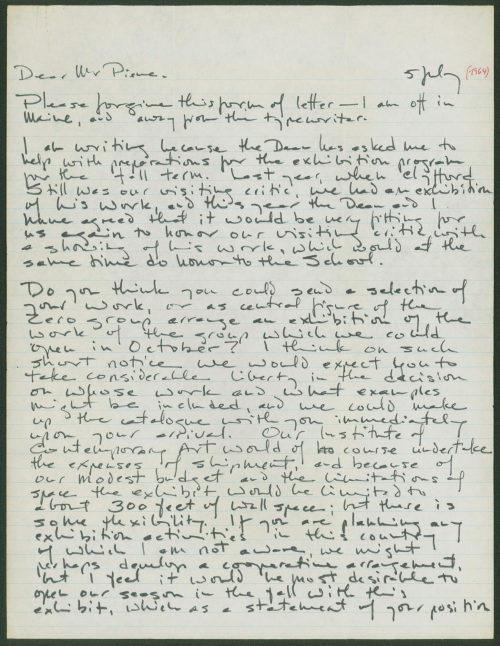 Dear Mr Piene.
5 July (1964)
Please forgive this form of letter — I am off in
Maine, and away from the typewriter.
I am writing because the Dean has asked me to
help with preparations for the exhibition program
for the fall term. Last year, when Clyfford
Still was our visiting critic, we had an exhibition
of his work, and this year the Dean and I
have agreed that it would be very fitting for
us again to honor our visiting critic with
a showing of his work, which would at the
same time do honor to the School.
Do you think you could send a selection of
your work, or as central figure of the
Zero group arrange an exhibition of the
work of the group which we could
open in October? I think on such
short notice we would expect you to
take considerable liberty in the decision
on whose work and what examples
might be included, and we could make
up the catalogue with you immediately
upon your arrival. Our Institute of
Contemporary Art would of course undertake
the expenses of shipment, and because of
our modest budget and the limitations of
space the exhibit would be limited to
about 300 feet of wall space; but there is
some flexibility. If you are planning any
exhibition activities in this country
of which I am not aware, we might
perhaps develop a cooperative arrangement,
but I feel it would be most desirable to
open our season in the fall with this
exhibit, which as a statement of your position